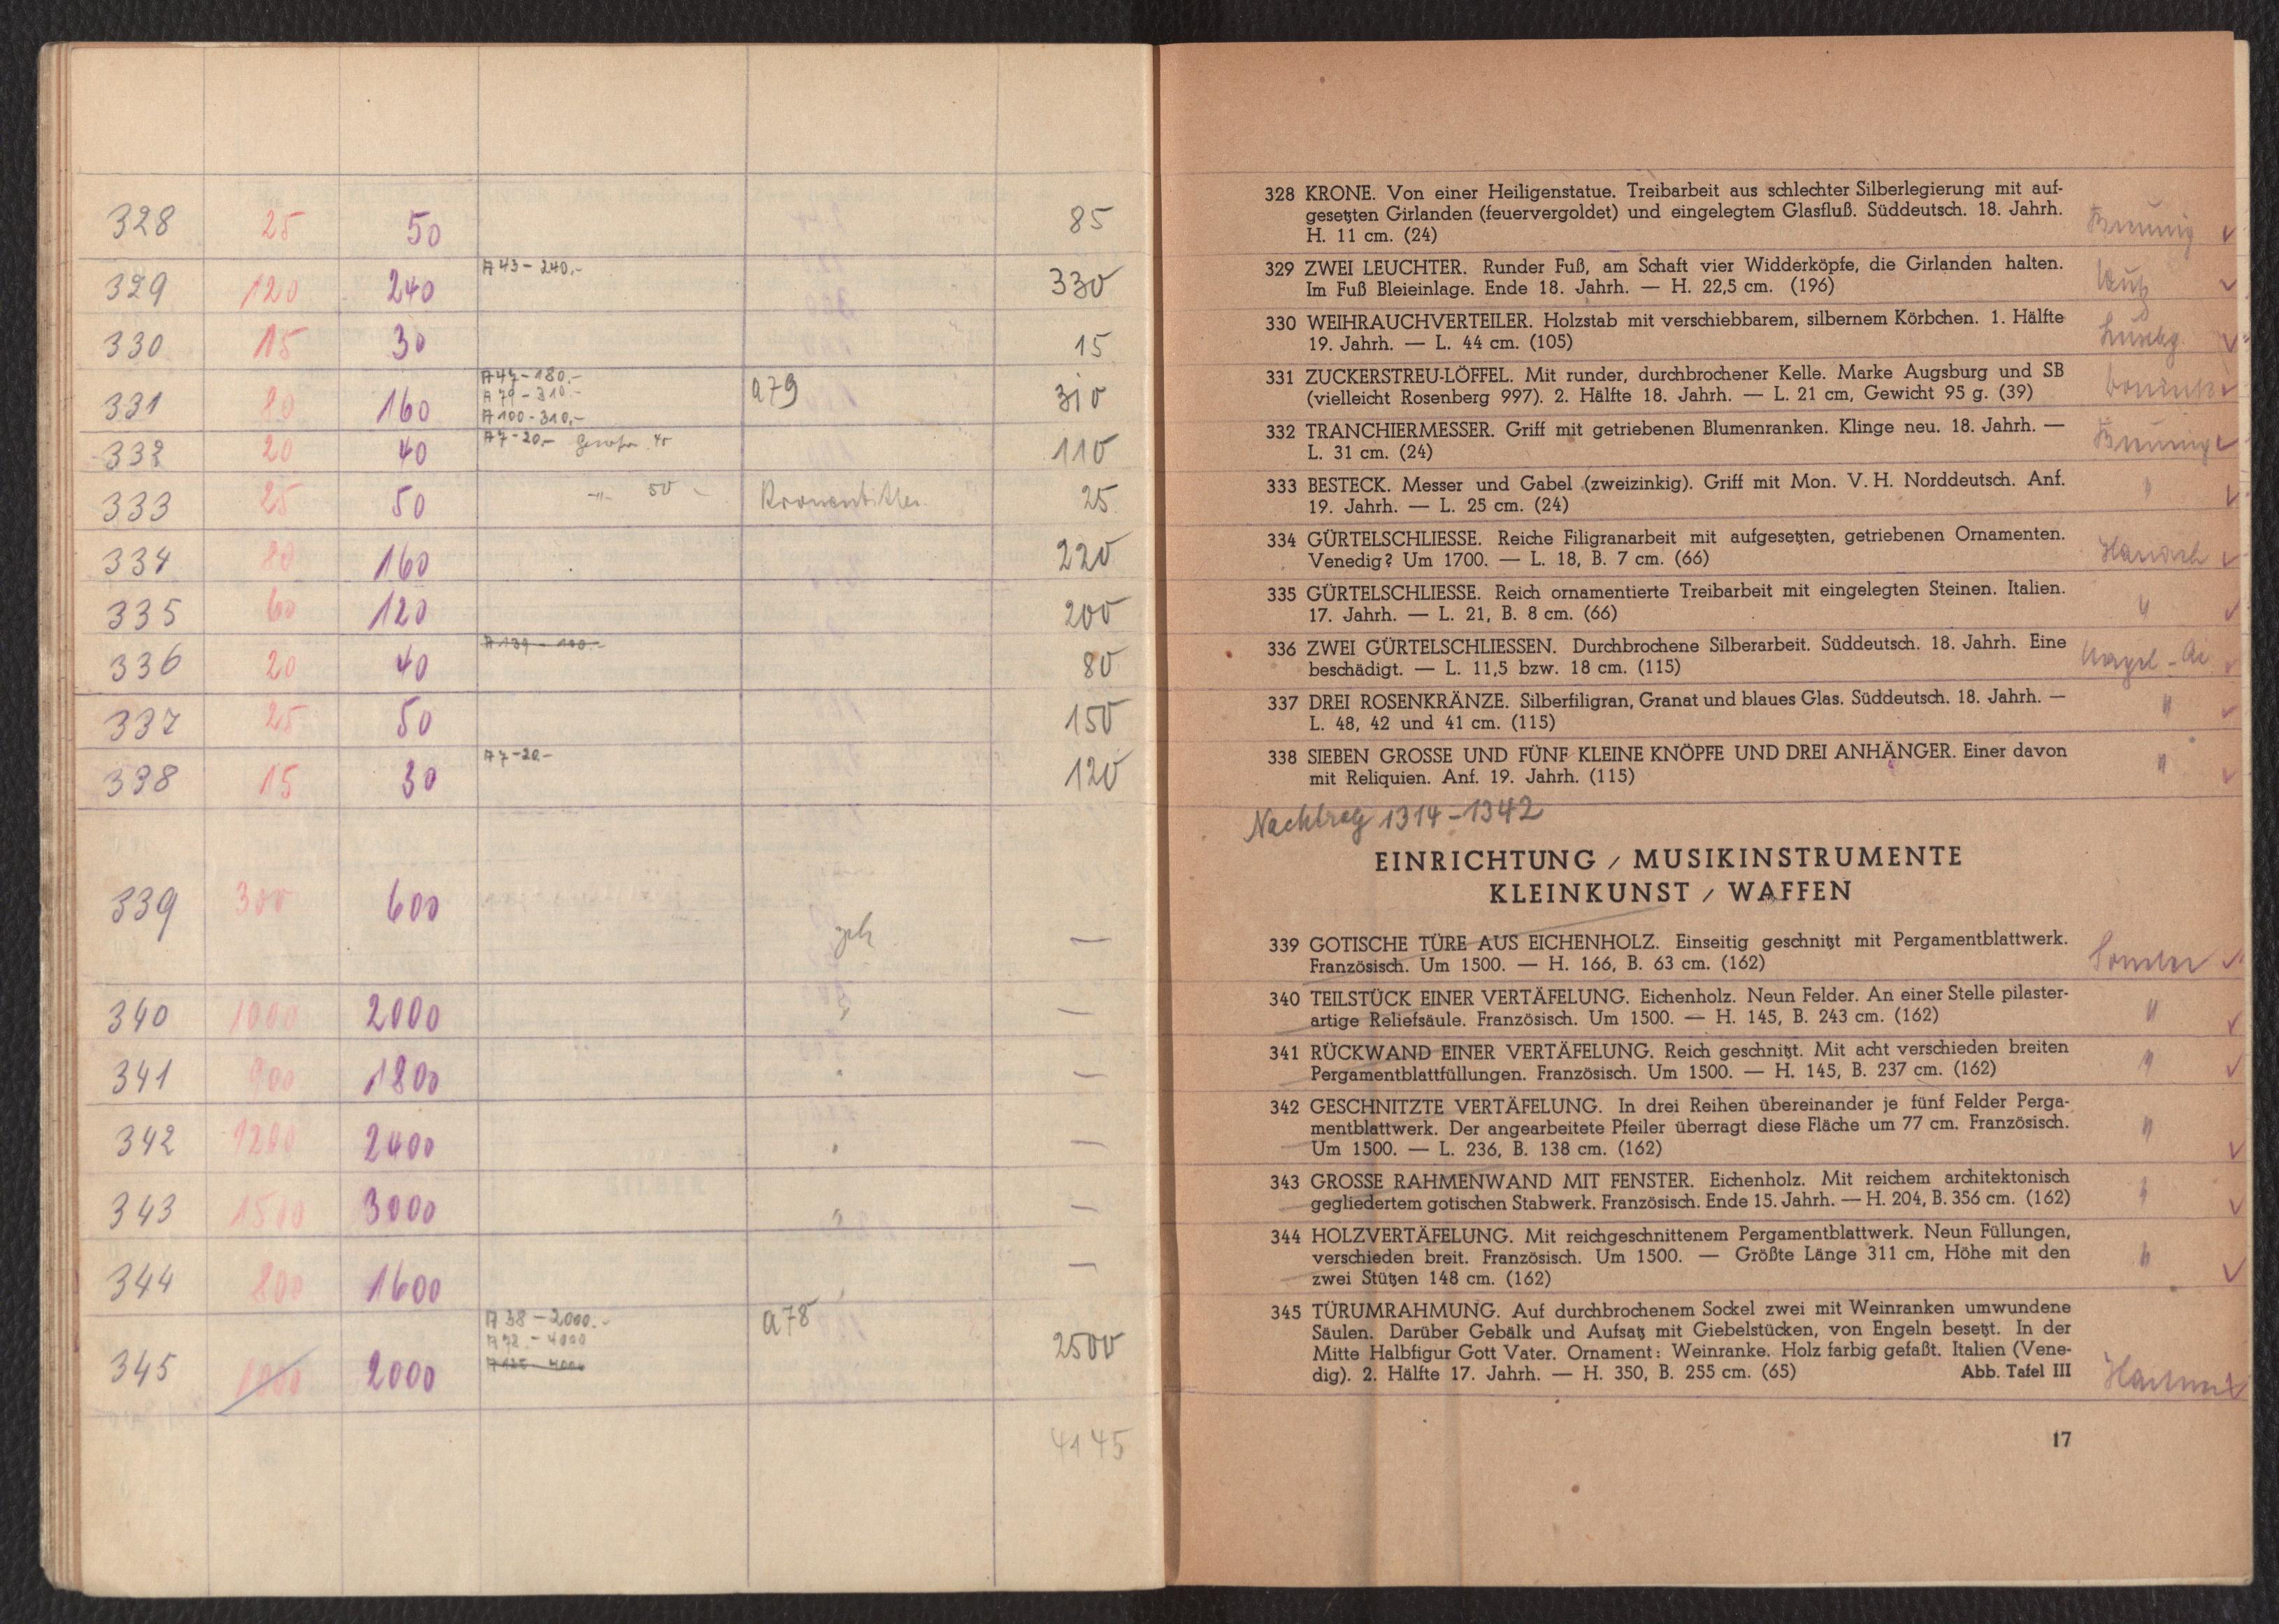 328 25 50 85
A 43 - 240,-
329 120 240 330
330 15 30 15
A 47 - 180.-
A 79 - 310.-
A 100 - 310,-
331 80 160 a79 310
A 7 - 20,-
332 20 40 110
333 25 50 -"- 50 - 25
334 80 160 220
335 60 120 200
A 139 - 100.-
336 20 40 80
337 25 50 150
A 7 - 20.-
338 15 30 120
339 300 600 —
340 1000 2000 —
341 900 1800 —
342 1200 2400 —
343 1500 3000 —
344 800 1600 —
A 38 - 2000.-
A 78.- 4000
345 1000 2000 a78 2500
4145
328 KRONE. Von einer Heiligenstatue. Treibarbeit aus schlechter Silberlegierung mit auf-
gesetzten Girlanden (feuervergoldet) und eingelegtem Glasfluß. Süddeutsch. 18. Jahrh.
H. 11 cm. (24)
329 ZWEI LEUCHTER. Runder Fuß, am Schaft vier Widderköpfe, die Girlanden halten.
Im Fuß Bleieinlage. Ende 18. Jahrh. — H. 22,5 cm. (196)
330 WEIHRAUCHVERTEILER. Holzstab mit verschiebbarem, silbernem Körbchen. 1. Hälfte
19. Jahrh. — L. 44 cm. (105)
331 ZUCKERSTREU-LÖFFEL. Mit runder, durchbrochener Kelle. Marke Augsburg und SB
(vielleicht Rosenberg 997). 2. Hälfte 18. Jahrh. — L. 21 cm, Gewicht 95 g. (39)
332 TRANCHIERMESSER. Griff mit getriebenen Blumenranken. Klinge neu. 18. Jahrh. —
L. 31 cm. (24)
333 BESTECK. Messer und Gabel (zweizinkig). Griff mit Mon. V. H. Norddeutsch. Anf.
19. Jahrh. — L. 25 cm. (24)
334 GÜRTELSCHLIESSE. Reiche Filigranarbeit mit aufgesetzten, getriebenen Ornamenten.
Venedig? Um 1700. — L. 18, B. 7 cm. (66)
335 GÜRTELSCHLIESSE. Reich ornamentierte Treibarbeit mit eingelegten Steinen. Italien.
17. Jahrh. — L. 21, B. 8 cm. (66)
336 ZWEI GÜRTELSCHLIESSEN. Durchbrochene Silberarbeit. Süddeutsch. 18. Jahrh. Eine
beschädigt. — L. 11,5 bzw. 18 cm. (115)
337 DREI ROSENKRÄNZE. Silberfiligran, Granat und blaues Glas. Süddeutsch. 18. Jahrh. —
L. 48, 42 und 41 cm. (115)
338 SIEBEN GROSSE UND FÜNF KLEINE KNÖPFE UND DREI ANHÄNGER. Einer davon
mit Reliquien. Anf. 19. Jahrh. (115)
Nachtrag 1314 - 1342
EINRICHTUNG / MUSIKINSTRUMENTE
KLEINKUNST / WAFFEN
339 GOTISCHE TÜRE AUS EICHENHOLZ. Einseitig geschnitzt mit Pergamentblattwerk.
Französisch. Um 1500. — H. 166, B. 63 cm. (162)
340 TEILSTÜCK EINER VERTÄFELUNG. Eichenholz. Neun Felder. An einer Stelle pilaster-
artige Reliefsäule. Französisch. Um 1500. — H. 145, B. 243 cm. (162)
341 RÜCKWAND EINER VERTÄFELUNG. Reich geschnitzt. Mit acht verschieden breiten
Pergamentblattfüllungen. Französisch. Um 1500. — H. 145, B. 237 cm. (162)
342 GESCHNITZTE VERTÄFELUNG. In drei Reihen übereinander je fünf Felder Perga-
mentblattwerk. Der angearbeitete Pfeiler überragt diese Fläche um 77 cm. Französisch.
Um 1500. — L. 236, B. 138 cm. (162)
343 GROSSE RAHMENWAND MIT FENSTER. Eichenholz. Mit reichem architektonisch
gegliedertem gotischen Stabwerk. Französisch. Ende 15. Jahrh. — H. 204, B. 356 cm. (162)
344 HOLZVERTÄFELUNG. Mit reichgeschnittenem Pergamentblattwerk. Neun Füllungen,
verschieden breit. Französisch. Um 1500. — Größte Länge 311 cm, Höhe mit den
zwei Stützen 148 cm. (162)
345 TÜRUMRAHMUNG. Auf durchbrochenem Sockel zwei mit Weinranken umwundene
Säulen. Darüber Gebälk und Aufsatz mit Giebelstücken, von Engeln besetzt. In der
Mitte Halbfigur Gott Vater. Ornament: Weinranke. Holz farbig gefaßt. Italien (Vene-
dig). 2. Hälfte 17. Jahrh. — H. 350, B. 255 cm. (65) Abb. Tafel III
17